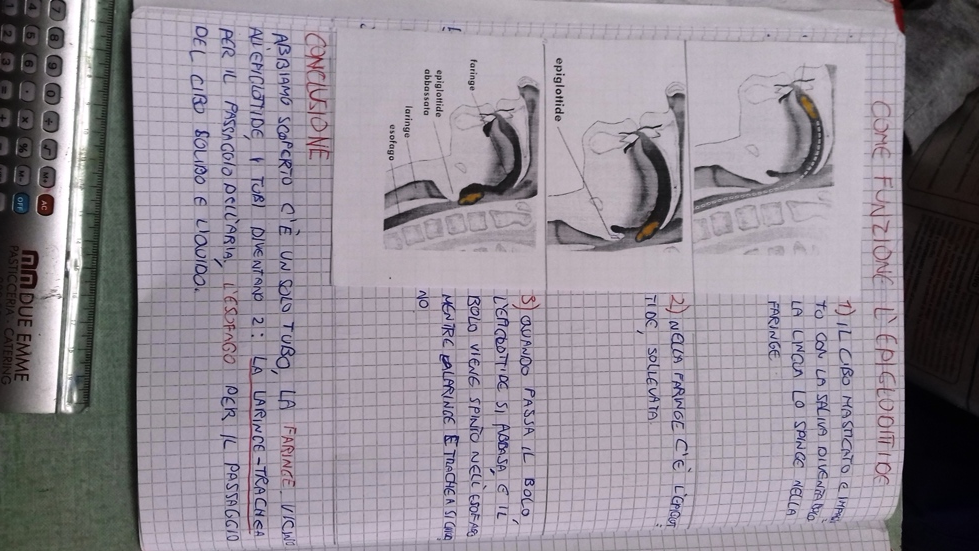 COME FUNZIONE L'EPIGLODITIDE
1) IL CIBO MASTICATO E IMPAS
TO CON LA SALIVA DIVENTA BOLO
LA LINGUA LO SPINGE NELLA
FARINGE
2) NELLA FARINGE C'È L'EPIGLOT
TIDE, SOLLEVATA.
epiglottide
3) QUANDO PASSA IL BOLO,
L'EPIGLOTTIDE SI ABBASA, E IL
BOLO VIENE SPINTO NELL'ESOFAGO
MENTRE LARINGE E TRACHEA SI CHIUDO
NO
faringe
epiglottide
abbassata
laringe
esofago
CONCLUSIONE
ABBIAMO SCOPERTO C'È UN SOLO TUBO, LA FARINGE. VICINO
ALL'EPIGLOTIDE, I TUBI DIVENTANO 2: LA LARINGE-TRACHEA
PER IL PASSAGGIO DELL'ARIA, L'ESOFAGO PER IL PASSAGGIO
DEL CIBO SOLIDO E LIQUIDO.
DUE EMME
PASTICCERIA - CATERING
AC
OFF